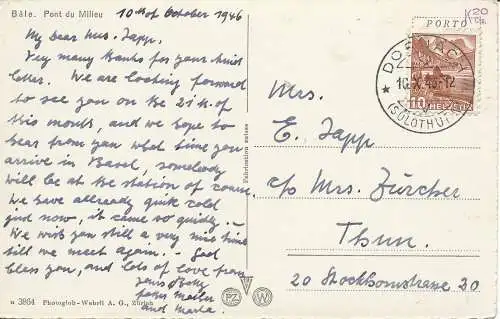 Bâle. Pont du Milieu
10th of October 1946
My dear Mrs. Japp.
Very many thanks for your kind
letter. We are looking forward
to see you on the 21th of
this month, and we hope to
hear from you what time you
arrive in Basel, somebody
will be at the station of course.
We have allready quit cold
just now, it came so quickly. -
We wish you still a very nice time
till we meet again. - God
bless you, and lots of love from
yours
and Marta
n 3864 Photoglob-Wehrli A. G., Zürich
Fabrication suisse
PZ W
PORTO
20
DORNACH
10.X.46-12
(SOLOTHURN)
10 HELVETIA
Mrs.
E. Japp
c/o Mrs. Zürcher
Thun.
20 Stockhornstrasse 20